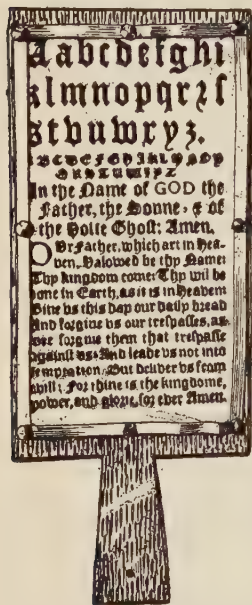 Aabcdefghi
klmnopqrzſ
stvuwxyz.
ABCDEFGHIKLMNOP
QRSTUWXYZ
In the Name of GOD the
Father, the Sonne, & of
the Holie Ghost: Amen.
OUr Father, which art in Hea-
ven, Halowed be thy Name:
Thy kingdom come: Thy wil be
done in Earth, as it is in heaven:
Give us this day our daily bread
And forgive vs our trespasses, as
wee forgiue them that trespasse
against vs: And leade vs not into
temptation, But deliver vs from
evill: For thine is the kingdome,
power, and glorie, for ever Amen.